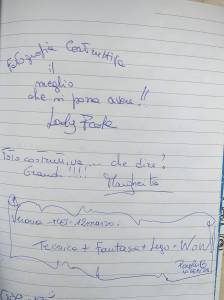 Fotografia Costruttiva
il
meglio
che si possa avere!!
Lady
Foto costruttiva ... che dire?
Grandi !!!!
Margherita
Verona 12 marzo
Tecnica + Fantasia + Lego = WOW!
Paola B